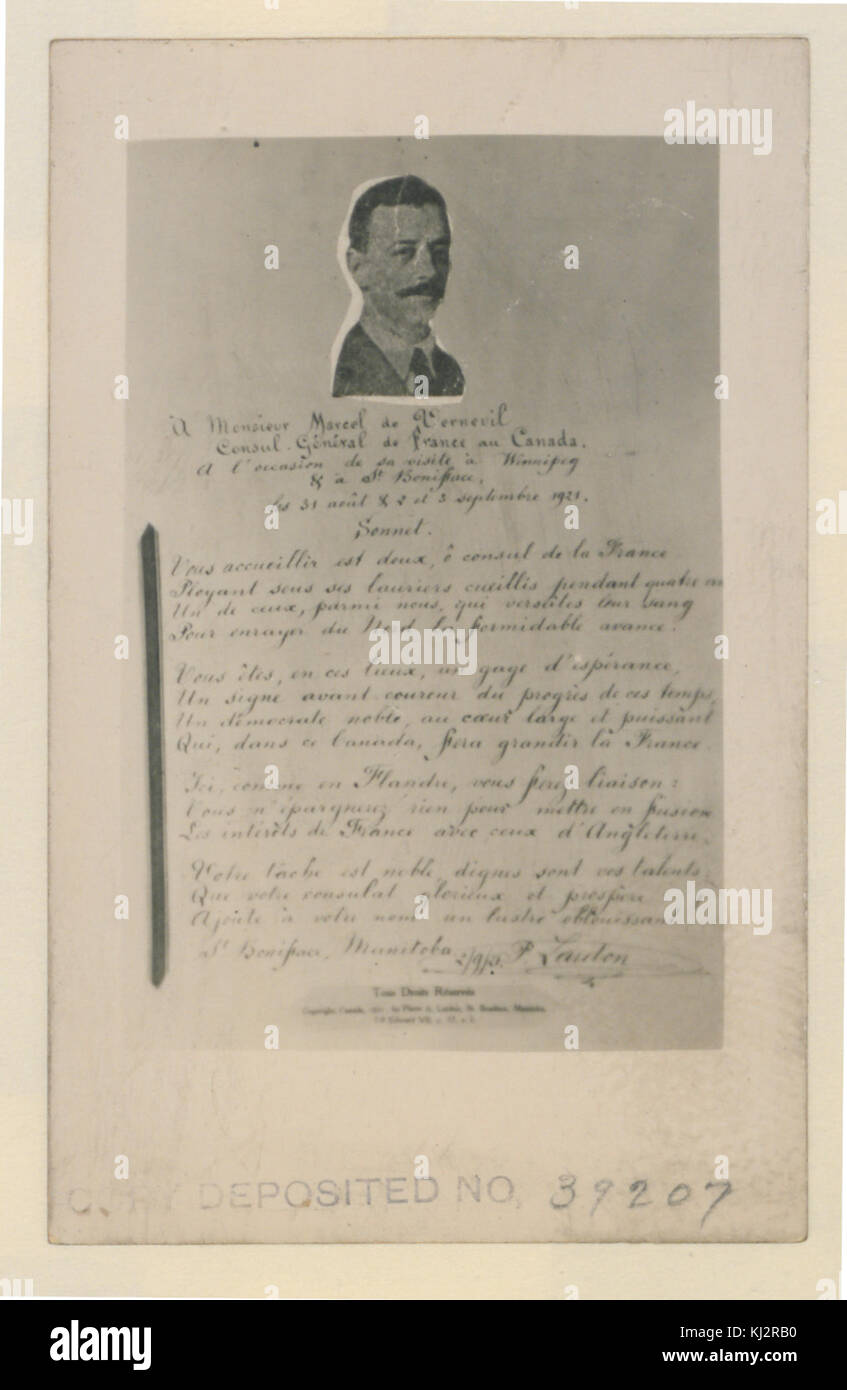 À Monsieur Marcel de Vernevil
Consul-Général de France au Canada.
A l'occasion de sa visite à Winnipeg
& à St Boniface,
les 31 août & 2 et 3 septembre 1921.
Sonnet.
Vous accueillir est doux, ô consul de la France
Ployant sous ses lauriers cueillis pendant quatre
Un de ceux, parmi nous, qui versâtes leur sang
Pour enrayer du Nord la formidable avance.
Vous êtes, en ces lieux, un gage d'espérance,
Un signe avant coureur du progrès de ces temps,
Un démocrate noble, au cœur large et puissant
Qui, dans ce Canada, fera grandir la France.
Ici, comme en Flandre, vous ferez liaison:
Vous n'épargnerez rien pour mettre en fusion
Les intérêts de France avec ceux d'Angleterre.
Votre tâche est noble, dignes sont vos talents:
Que votre consulat glorieux et prospère
Ajoute à votre nom un lustre éblouissant
St Boniface, Manitoba P. Lardon
Tous Droits Réservés
Copyright, Canada, by Pierre A. Lardon, St. Boniface, Manitoba.
COPY DEPOSITED NO. 39207
alamy
a
alamy
Image ID: KJ2RB0
www.alamy.com